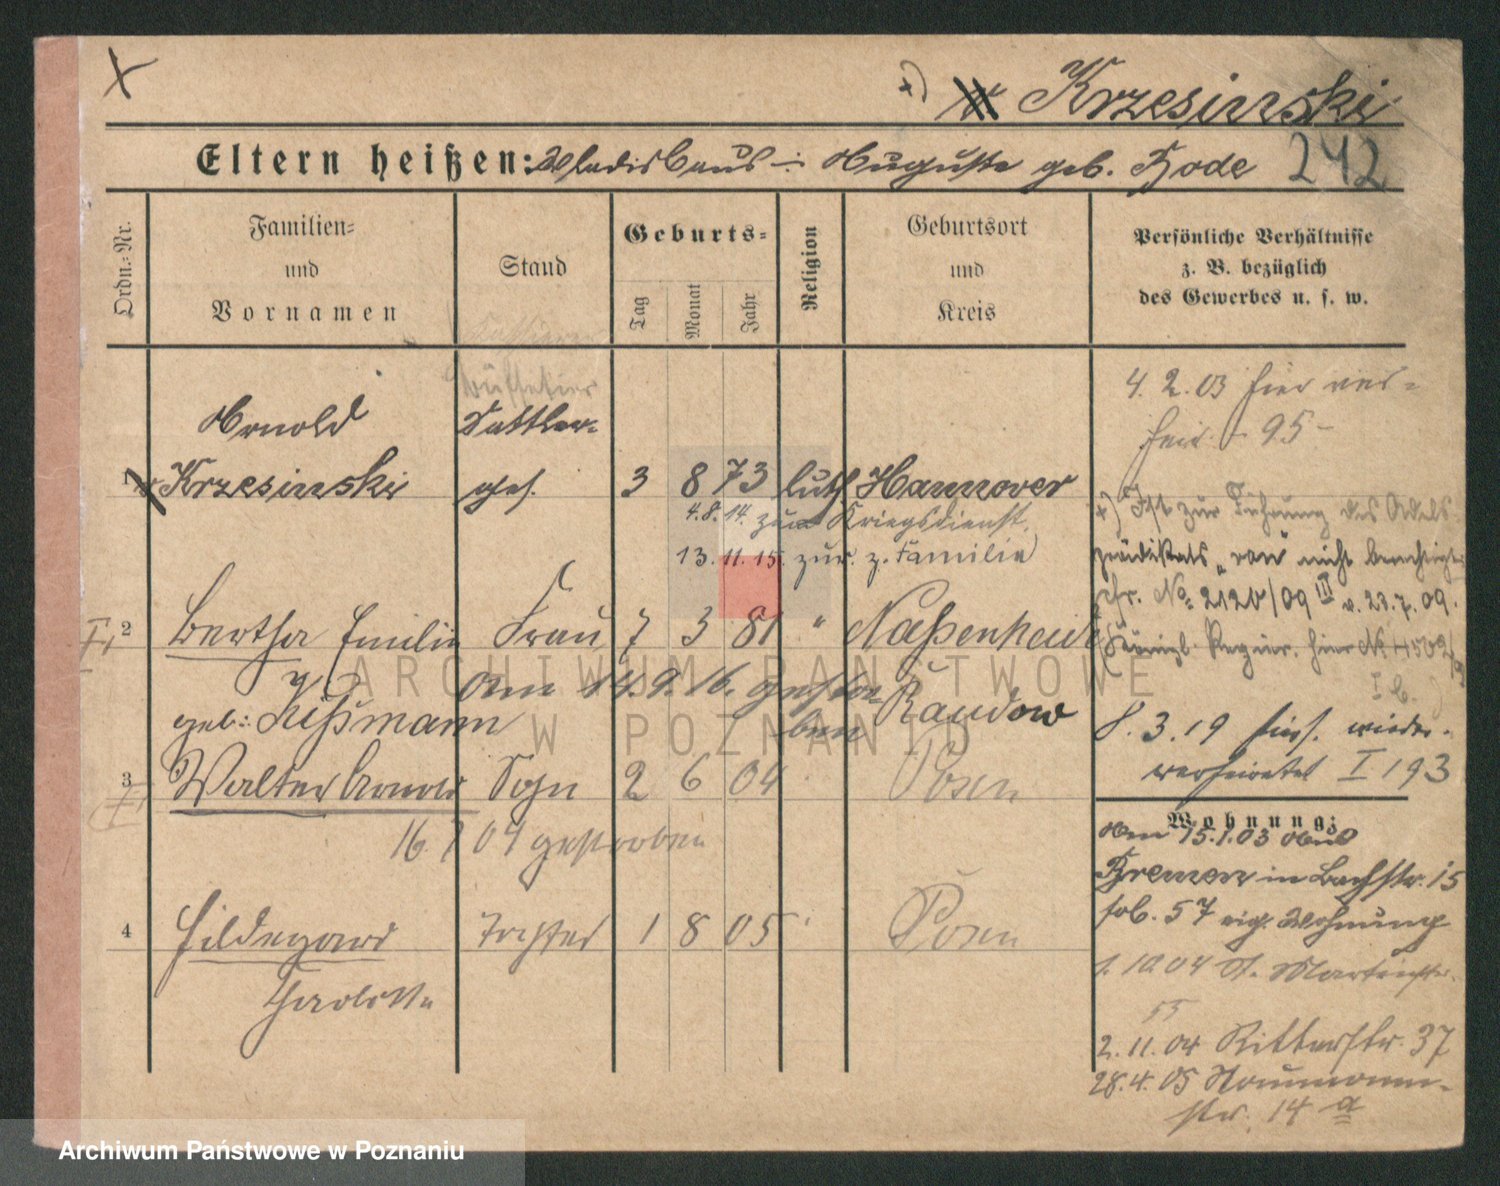 +) Krzesinski
Eltern heißen: Wladislaus – Auguste geb. Rode 242
Ordn.-Nr.
Familien-
und
Vornamen
Stand
Geburts-
Tag
Monat
Jahr
Religion
Geburtsort
und
Kreis
Persönliche Verhältnisse
z. B. bezüglich
des Gewerbes u. s. w.
Büffetier
Arnold Sattler-
1 Krzesinski ges. 3 8 73 luth Hannover
4.8.14. zum Kriegsdienst
13.11.15. zur. z. Familie
2 Bertha Emilie Frau 7 3 81 " Naßenheide
am 14.9.16. gestor-
ben
geb: Kißmann Randow
3 Walter Arnold Sohn 2 6 04 Posen
16.7 04 gestorben
4 Hildegard Tochter 1 8 05 Posen
Charlotte
4.2.03 hier ver-
heir. 95
+) Ist zur Führung des Adels
prädikats „von" nicht berechtigt
No 2120/09 III v. 23.7.09.
hier No 4502/
I b.
8.3.19 hies. wieder-
verheiratet I 193
Wohnung:
Am 15.1.03 aus
Bremen in Bachstr. 15
57 eig. Wohnung
1.10 04 St. Martinstr.
55
2.11.04 Ritterstr. 37
28.4.05 Naumann-
str. 14 a
ARCHIWUM PAŃSTWOWE
W POZNANIU
Archiwum Państwowe w Poznaniu